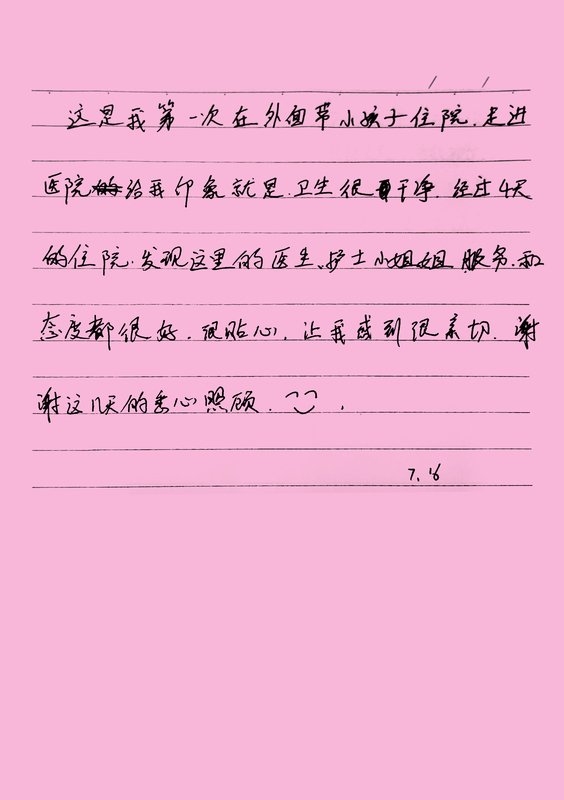 这是我第一次在外面带小孩子住院.走进
医院给我印象就是.卫生很干净.经过4天
的住院.发现这里的医生、护士小姐姐服务.和
态度都很好.很贴心.让我感到很亲切.谢
谢这几天的悉心照顾.
7.16